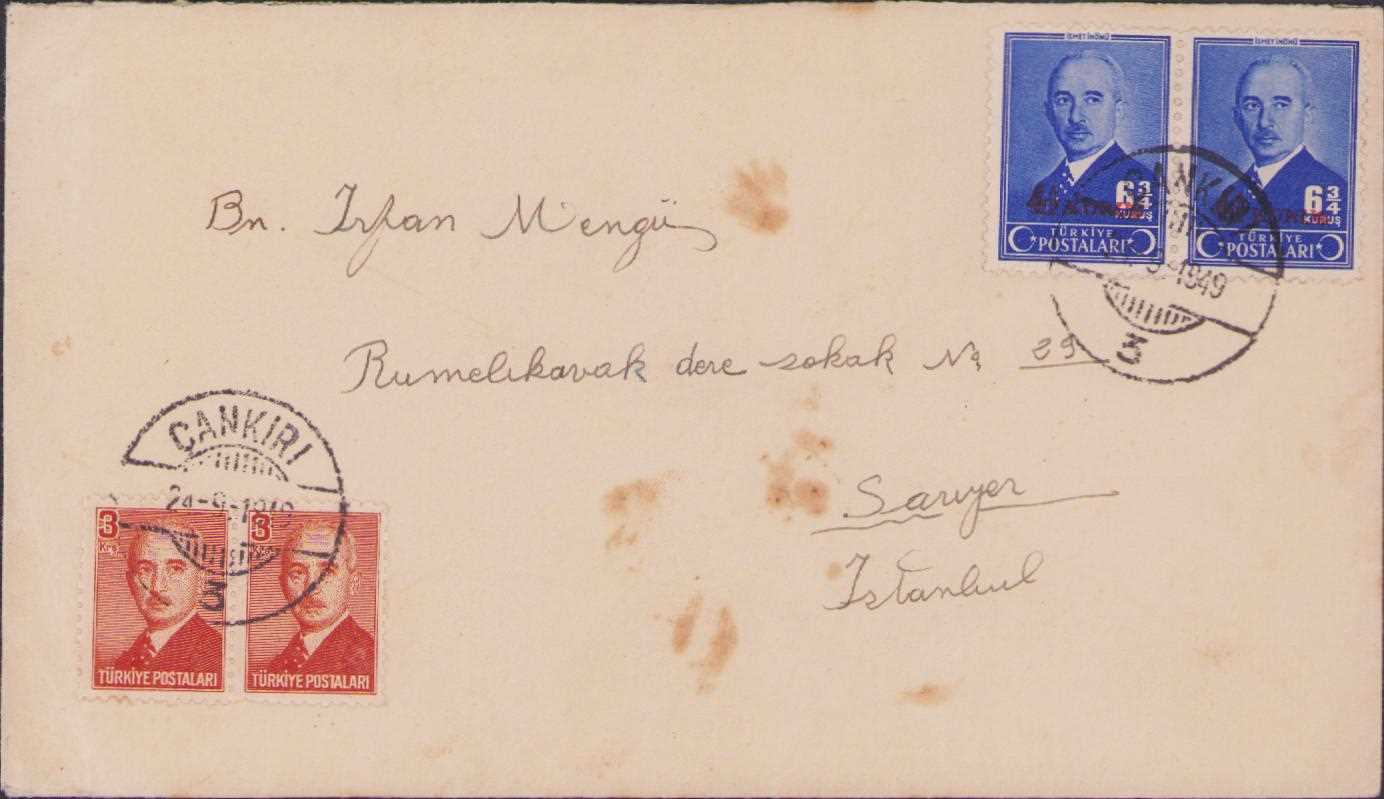 İSMET İNÖNÜ
6 3/4
KURUŞ
TÜRKİYE
POSTALARI
İSMET İNÖNÜ
6 3/4
KURUŞ
TÜRKİYE
POSTALARI
ÇANKIRI
-9-1949
3
Bn. İrfan Mengü
Rumelikavak dere sokak No 29
Sarıyer
İstanbul
ÇANKIRI
24-9-1949
3
3
Krş.
TÜRKİYE POSTALARI
3
Krş.
TÜRKİYE POSTALARI